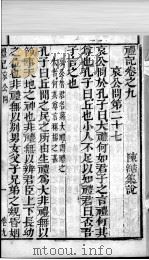 禮記卷之九
陳澔集說
哀公問第二十七
哀公問於孔子曰大禮何如君子之言禮何其
尊也孔子曰丘也小人不足以知禮君曰否吾
子言之也
孔子曰丘聞之民之所由生禮為大非禮無以
節事天地之神也非禮無以辨君臣上下長幼
之位也非禮無以別男女父子兄弟之親昏姻
mtoou.info
mtoou.info